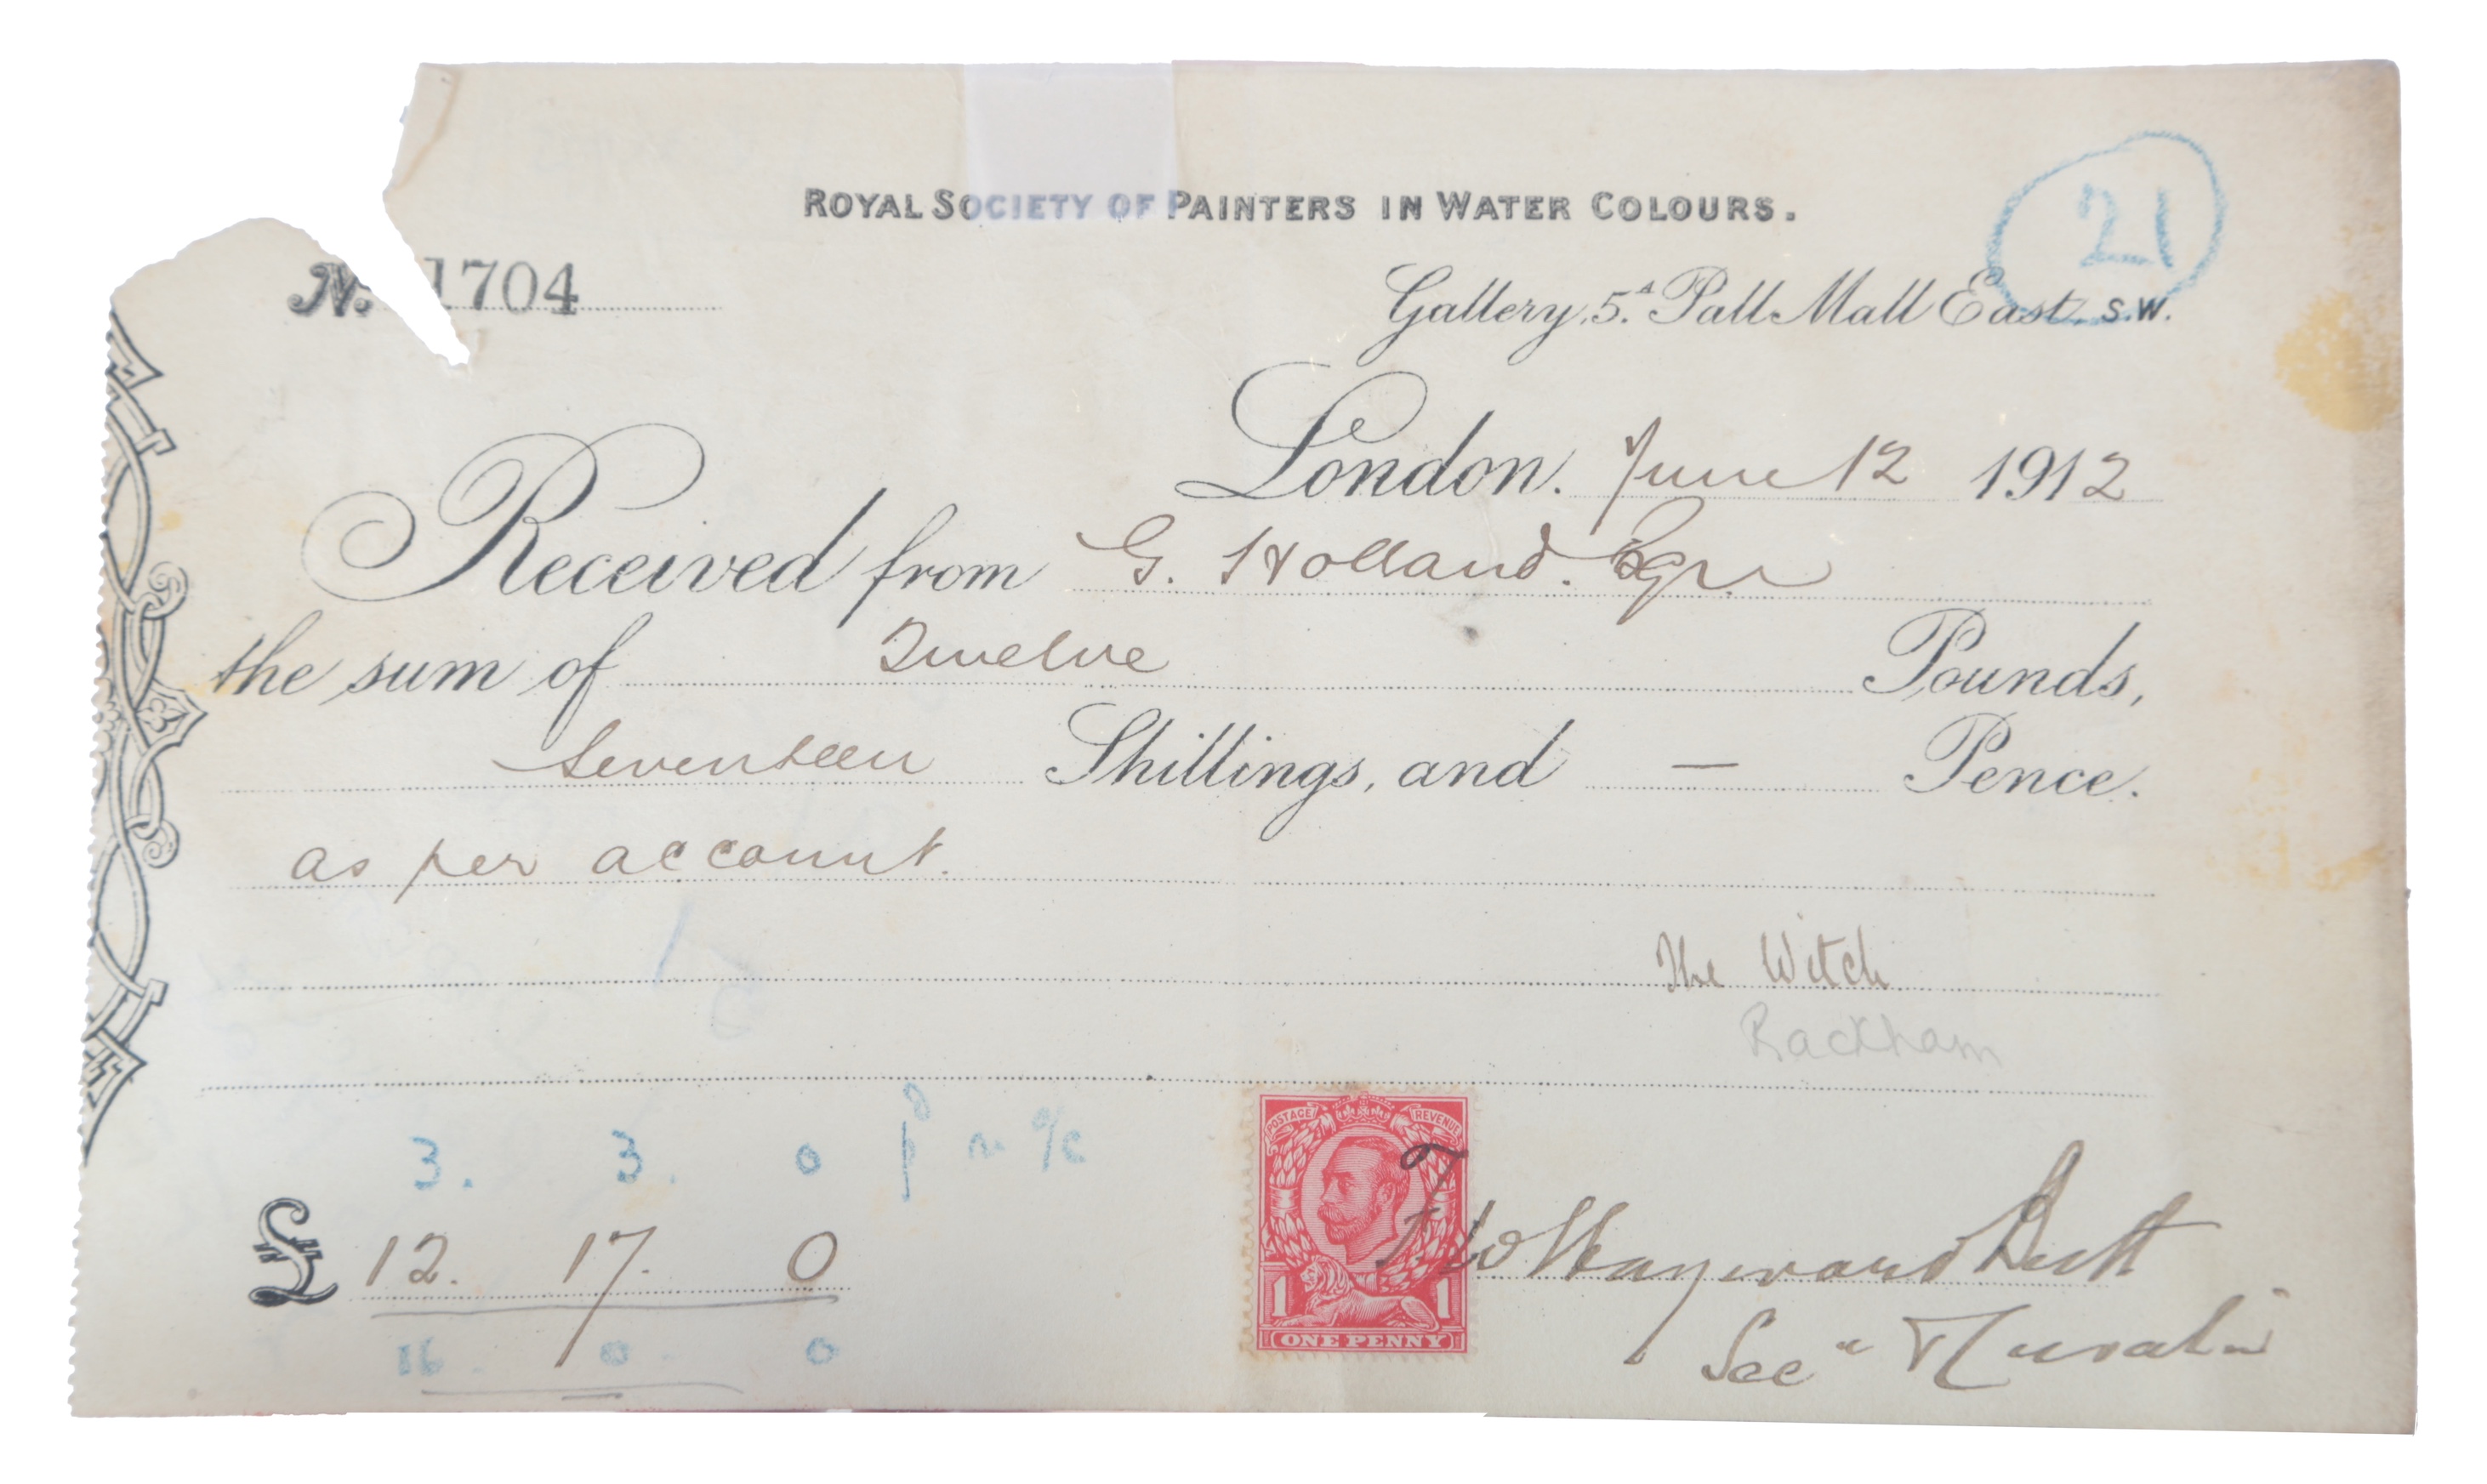 ROYAL SOCIETY OF PAINTERS IN WATER COLOURS.
21
No. 1704
Gallery, 5A. Pall Mall East, S.W.
London. June 12 1912
Received from G. Holland. Esqre
the sum of Twelve Pounds,
Seventeen Shillings, and — Pence.
as per account.
The Witch
Rackham
POSTAGE REVENUE
3. 3. 0
£ 12. 17. 0
Hayward Butt
1 1
ONE PENNY
Secy
16. 0. 0